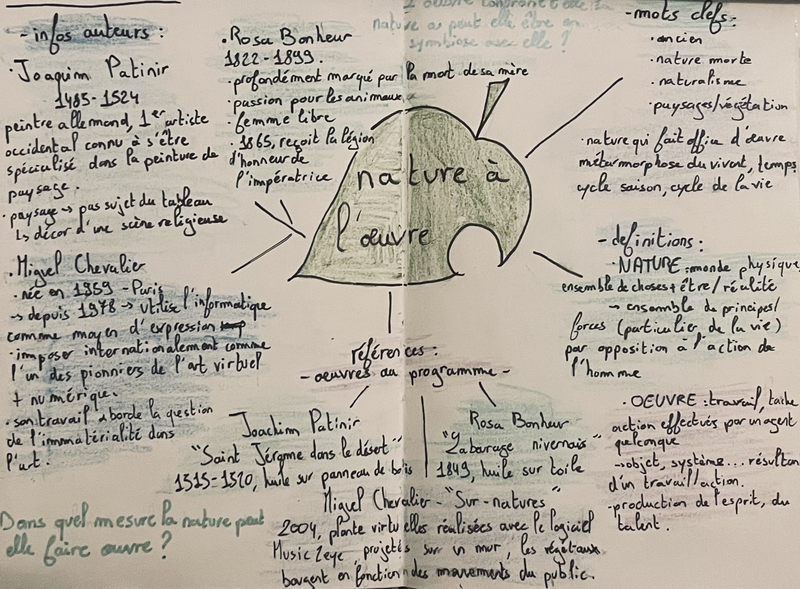 - infos auteurs :
· Joaquim Patinir
1485-1524
peintre allemand, 1er artiste
occidental connu à s'être
spécialisé dans la peinture de
paysage.
· paysage → pas sujet du tableau
↳ décor d'une scène religieuse
· Miguel Chevalier
· née en 1959 - Paris
→ depuis 1978 → utilise l'informatique
comme moyen d'expression
· imposer internationalement comme
l'un des pionniers de l'art virtuel
+ numérique.
· son travail aborde la question
de l'immatérialité dans
l'art.
Dans quel mesure la nature peut
elle faire œuvre ?
· Rosa Bonheur
1822-1899.
· profondément marqué par la mort de sa mère
· passion pour les animaux
· femme libre
· 1865, reçoit la légion
d'honneur de
l'impératrice
l'œuvre de la
nature ou peut elle être en
symbiose avec elle ?
nature à
l'œuvre
références :
- oeuvres au programme -
Joachim Patinir
"Saint Jérôme dans le désert"
1515-1520, huile sur panneau de bois
Rosa Bonheur
"Labourage nivernais"
1849, huile sur toile
Miguel Chevalier - "Sur-natures"
2004, plante virtuelles réalisées avec le logiciel
Music2eye, projetés sur un mur, les végétaux
bougent en fonction des mouvements du public.
- mots clefs :
· ancien
· nature morte
· naturalisme
· paysages/végétation
· nature qui fait office d'œuvre
métarmorphose du vivant, temps
cycle saison, cycle de la vie
- définitions :
· NATURE : monde physique
ensemble de choses + être / réalité
→ ensemble de principes/
forces (particulier de la vie)
par opposition à l'action de
l'homme
· OEUVRE : travail, tâche
action effectués par un agent
quelconque
→ objet, système... résultan
d'un travail/action.
· production de l'esprit, du
talent.